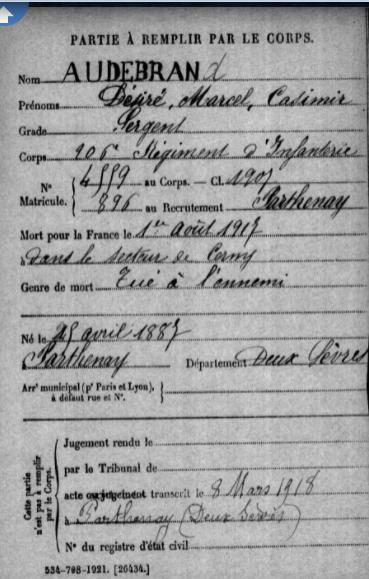 PARTIE À REMPLIR PAR LE CORPS.
Nom AUDEBRAND
Prénoms Désiré, Marcel, Casimir
Grade Sergent
Corps 106e Régiment d'Infanterie
No Matricule. 4559 au Corps. — Cl. 1907
896 au Recrutement Parthenay
Mort pour la France le 1er août 1917
à dans le secteur de Cerny
Genre de mort Tué à l'ennemi
Né le avril 1887
Parthenay Département Deux Sèvres
Arrt municipal (pr Paris et Lyon),
à défaut rue et No.
Cette partie n'est pas à remplir par le Corps.
Jugement rendu le
par le Tribunal de
acte ou jugement transcrit le 8 Mars 1918
à Parthenay (Deux Sèvres)
No du registre d'état civil
534-708-1921. [26434.]